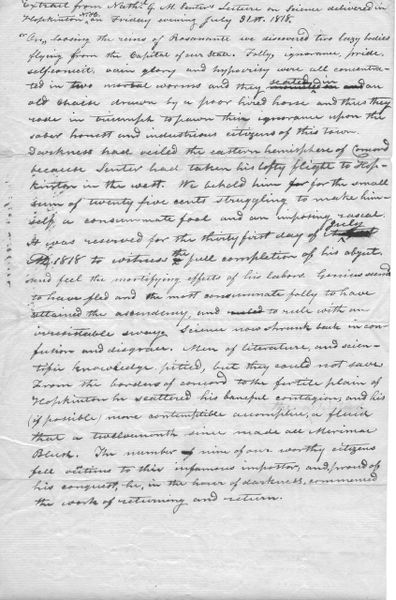 Extract from Nath. G. M. Senter's Lecture on Science delivered in
Hopkinton, N.H. on Friday evening July 31st. 1818.
"On, loosing the reins of Rosanante we discovered two lazy bodies
flying from the Capital of our State. Folly, ignorance, pride
selfconceit, vain glory and hypocrisy were all concentra-
ted in two mortal worms and they seated in an
old chaise drawn by a poor hired horse and thus they
rode in triumph to pawn their ignorance upon the
sober honest and industrious citizens of this town.
Darkness had veiled the eastern hemisphere of Concord
because Senter had taken his lofty flight to Hop-
kinton in the west. We behold him for the small
sum of twenty five cents struggling to make him-
self a consummate fool and an imposing rascal.
It was reserved for the thirty first day of July
1818 to witness the full completion of his object.
And feel the mortifying effects of his labors Genius seemed
to have fled and the most consummate folly to have
attained the ascendency, and to rule with an
irresistible sway. Science now shrunk back in con-
fusion and disgrace. Men of literature, and scien-
tific knowledge pitied, but they could not save
From the borders of concord to the fertile plain of
Hopkinton he scattered his baneful contagion, and his
(if possible) more contemptible accomplice, a fluid
that a twelvemonth since made all Merimac
Blush. The number of nine of our worthy citizens
fell victims to this infamous impostor, and, proud of
his conquest, he, in the hour of darkness, commenced
the work of returning and return.